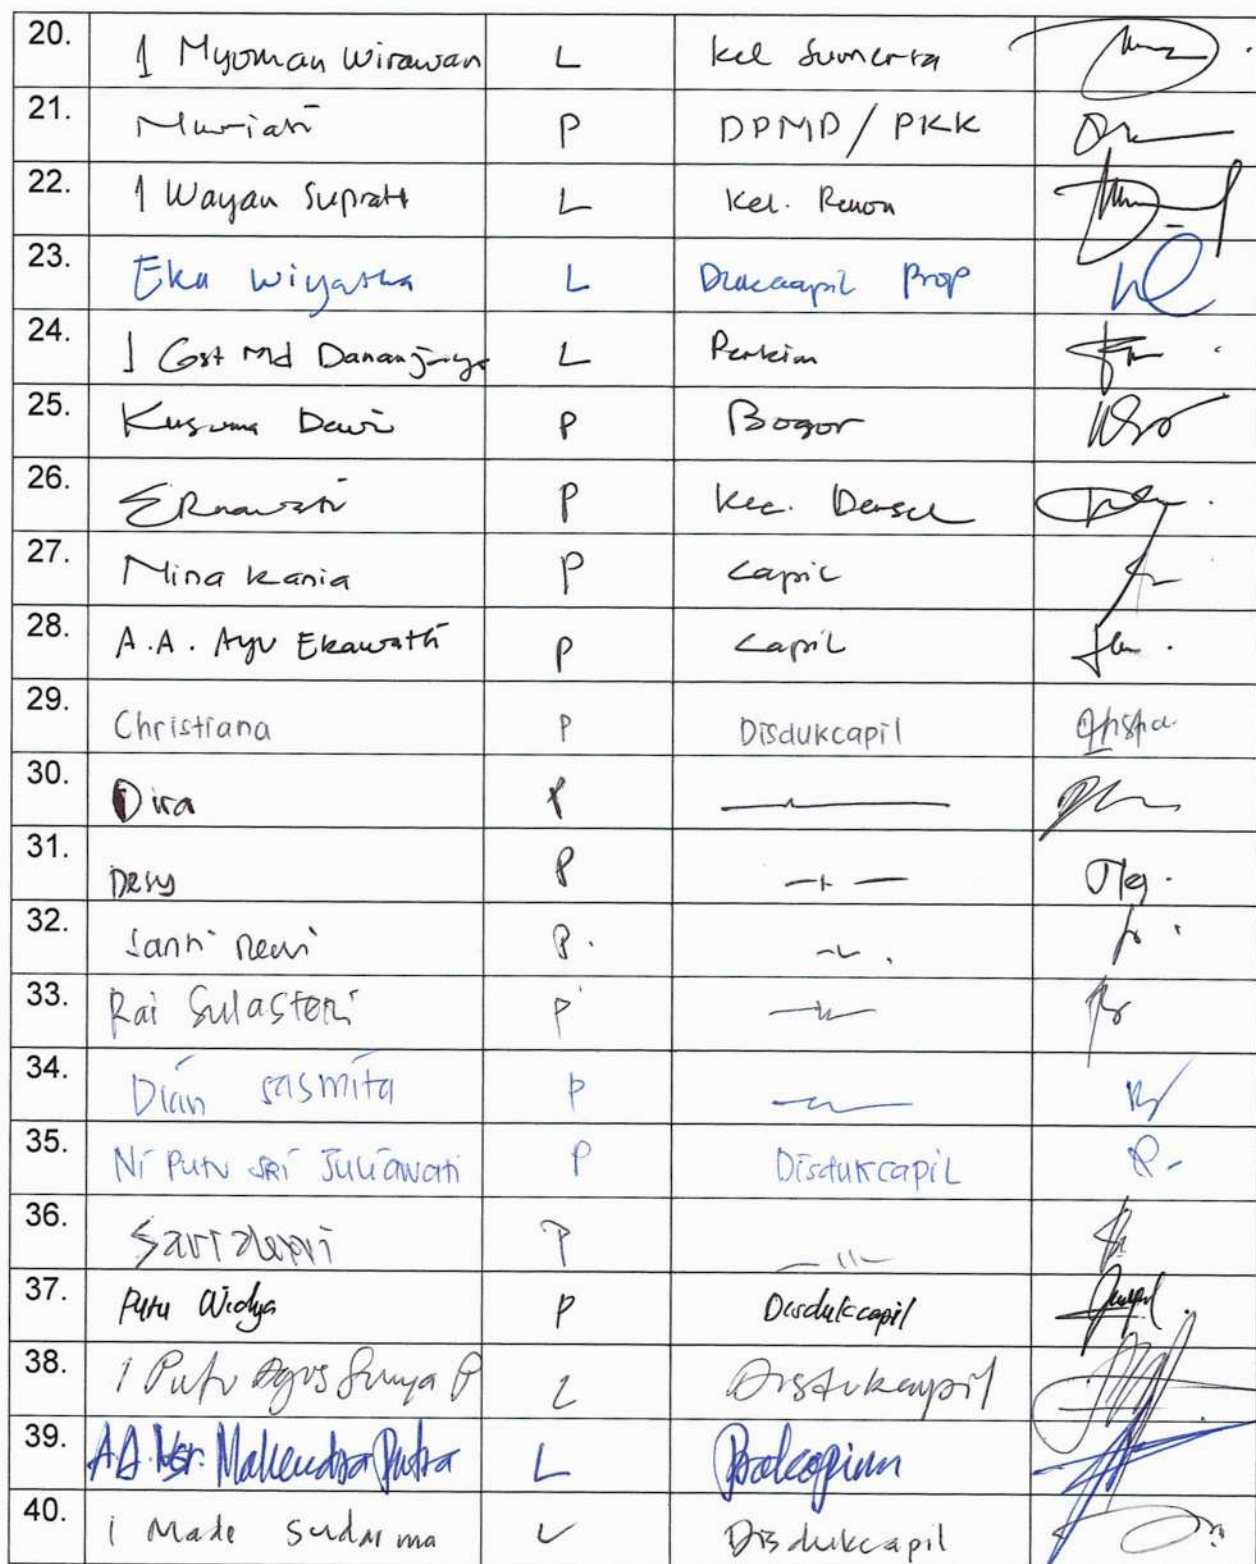 20. I Nyoman Wirawan L Kel Sumerta
21. Muriati P DPMD / PKK
22. I Wayan Supratt L Kel. Renon
23. Eka Wiyasha L Dukcapil Prop
24. I Gst Md Dananjaya L Perkim
25. Kusuma Dewi P Bogor
26. ERnawati P Kec. Densel
27. Nina Kania P Capil
28. A.A. Ayu Ekawati P Capil
29. Christiana P Disdukcapil
30. Dira P
31. Desy P
32. Santi Dewi P.
33. Rai Sulasteri P
34. Dian sasmita P
35. Ni Putu SRi Juliawati P Disdukcapil
36. Sari P
37. Putu Widya P Disdukcapil
38. I Putu Agus Surya P L Disdukcapil
39. A.A. Ngr. Mahendra Putra L Prokopim
40. I Made Sudarma L Disdukcapil